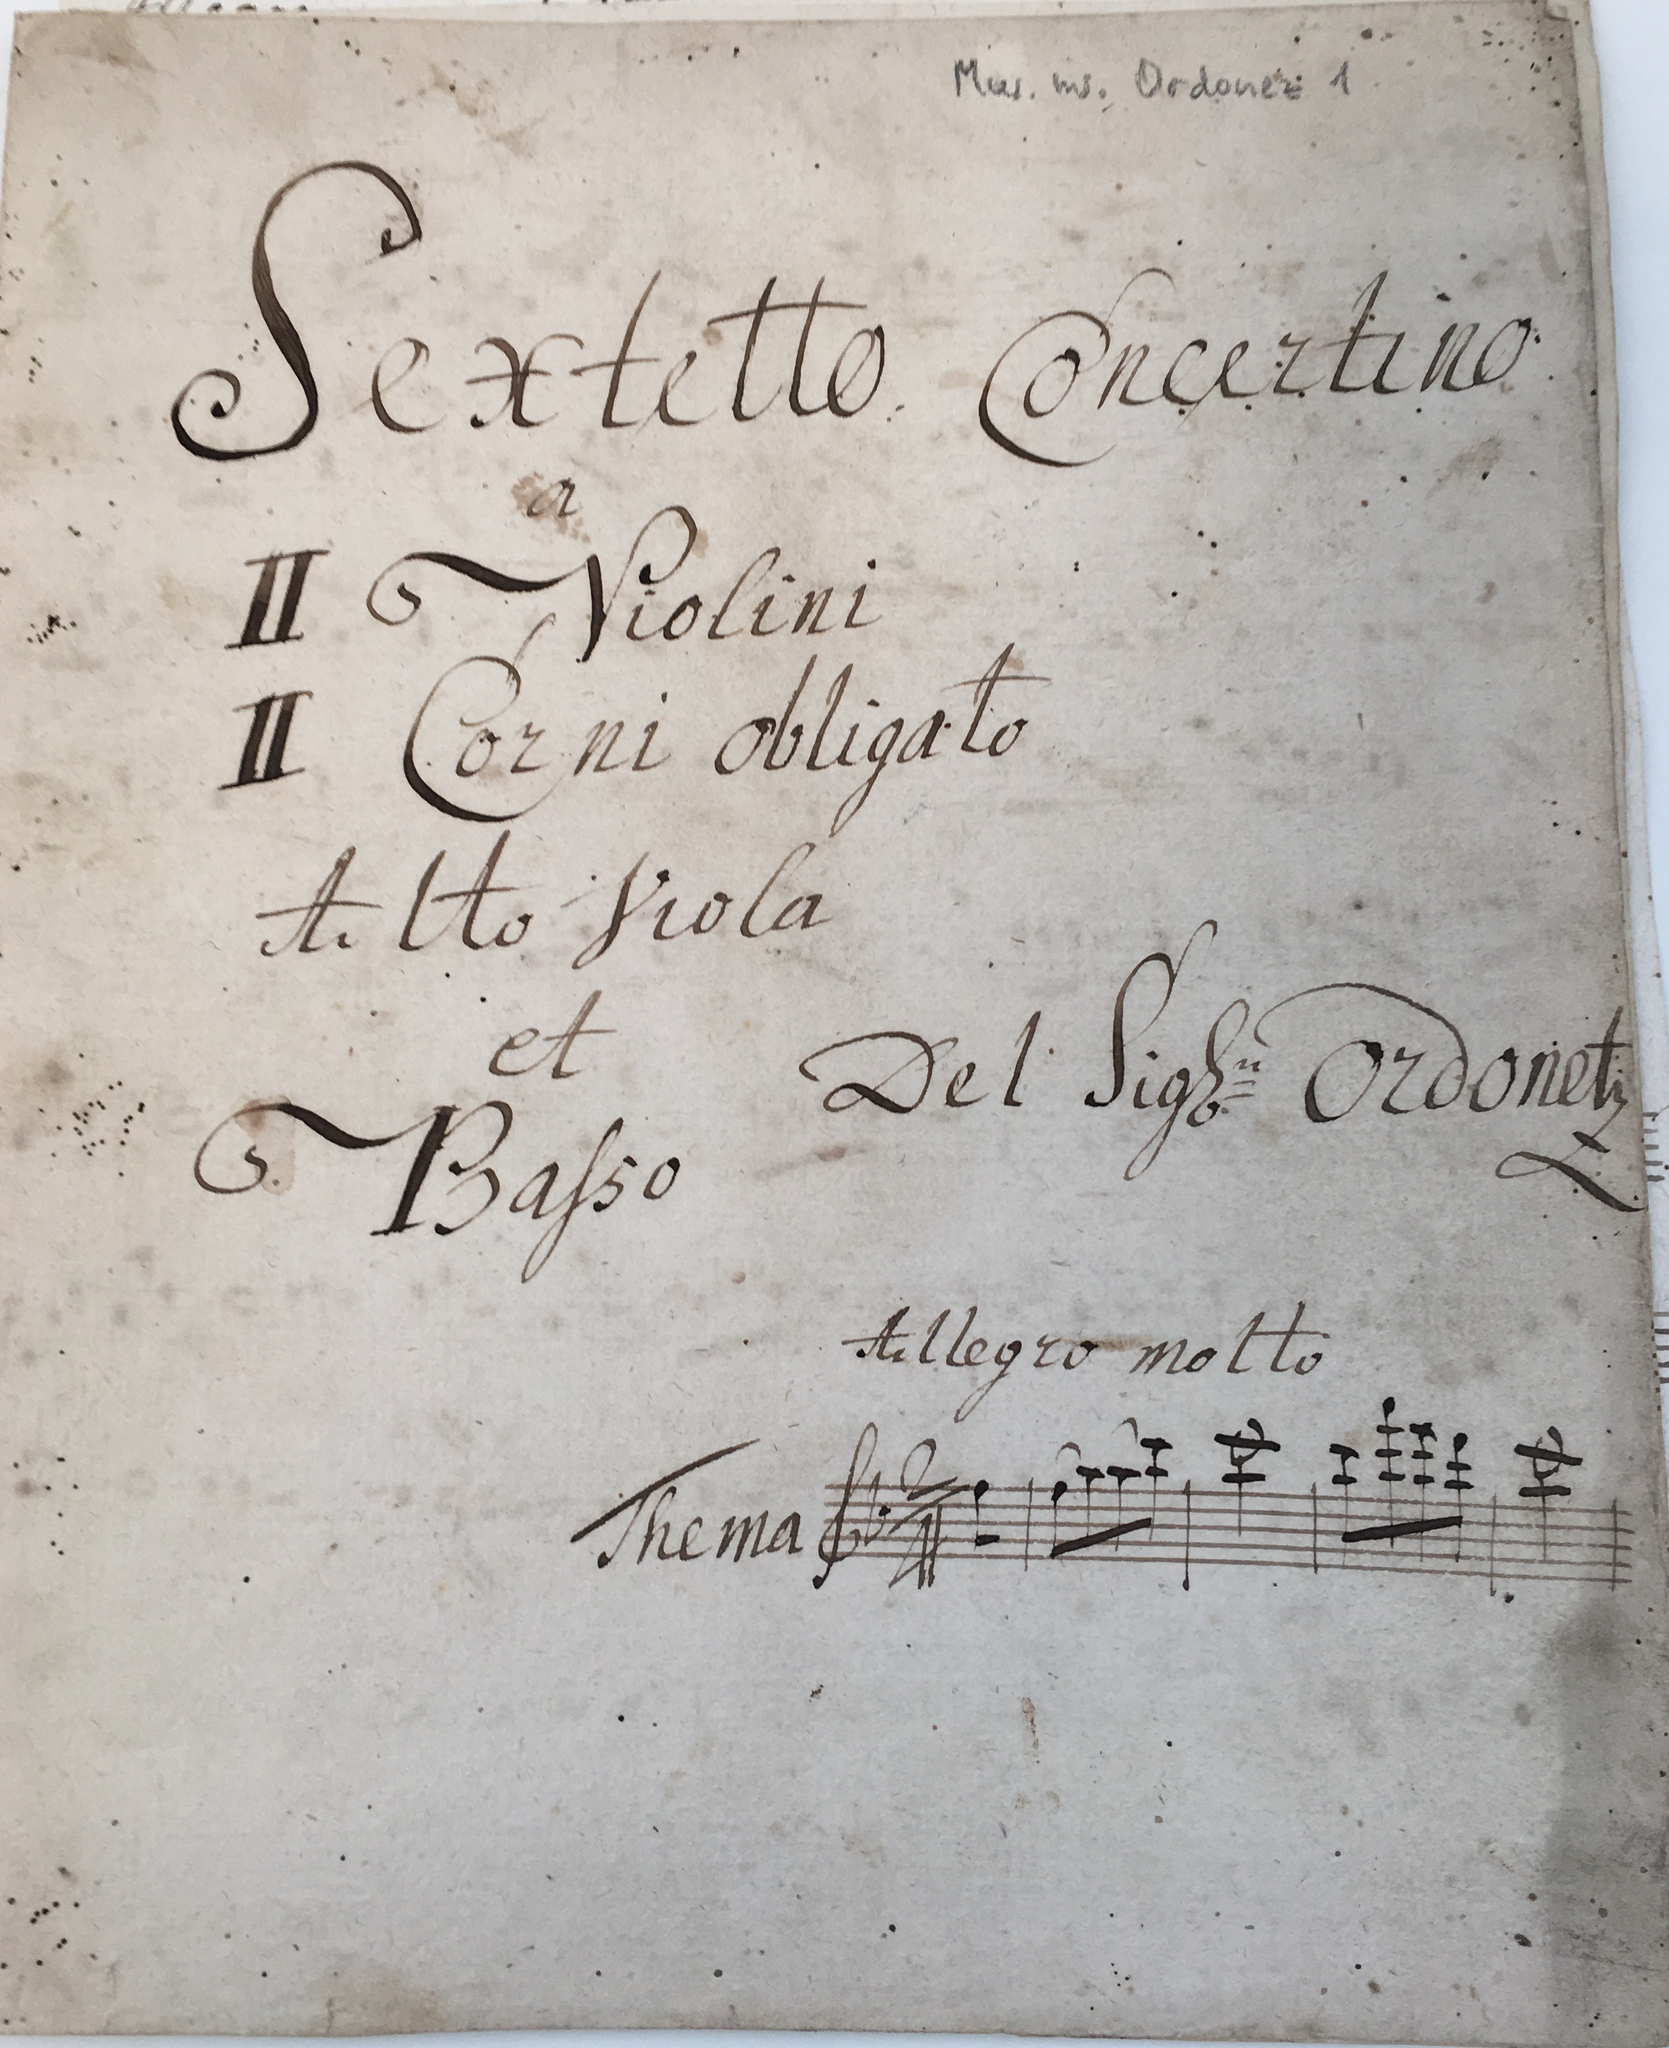 Mus. ms. Ordonez 1
Sextetto Concertino
a
II Violini
II Corni obligato
Alto Viola
et
Del Sigh Ordonetz
Basso
Allegro molto
Thema